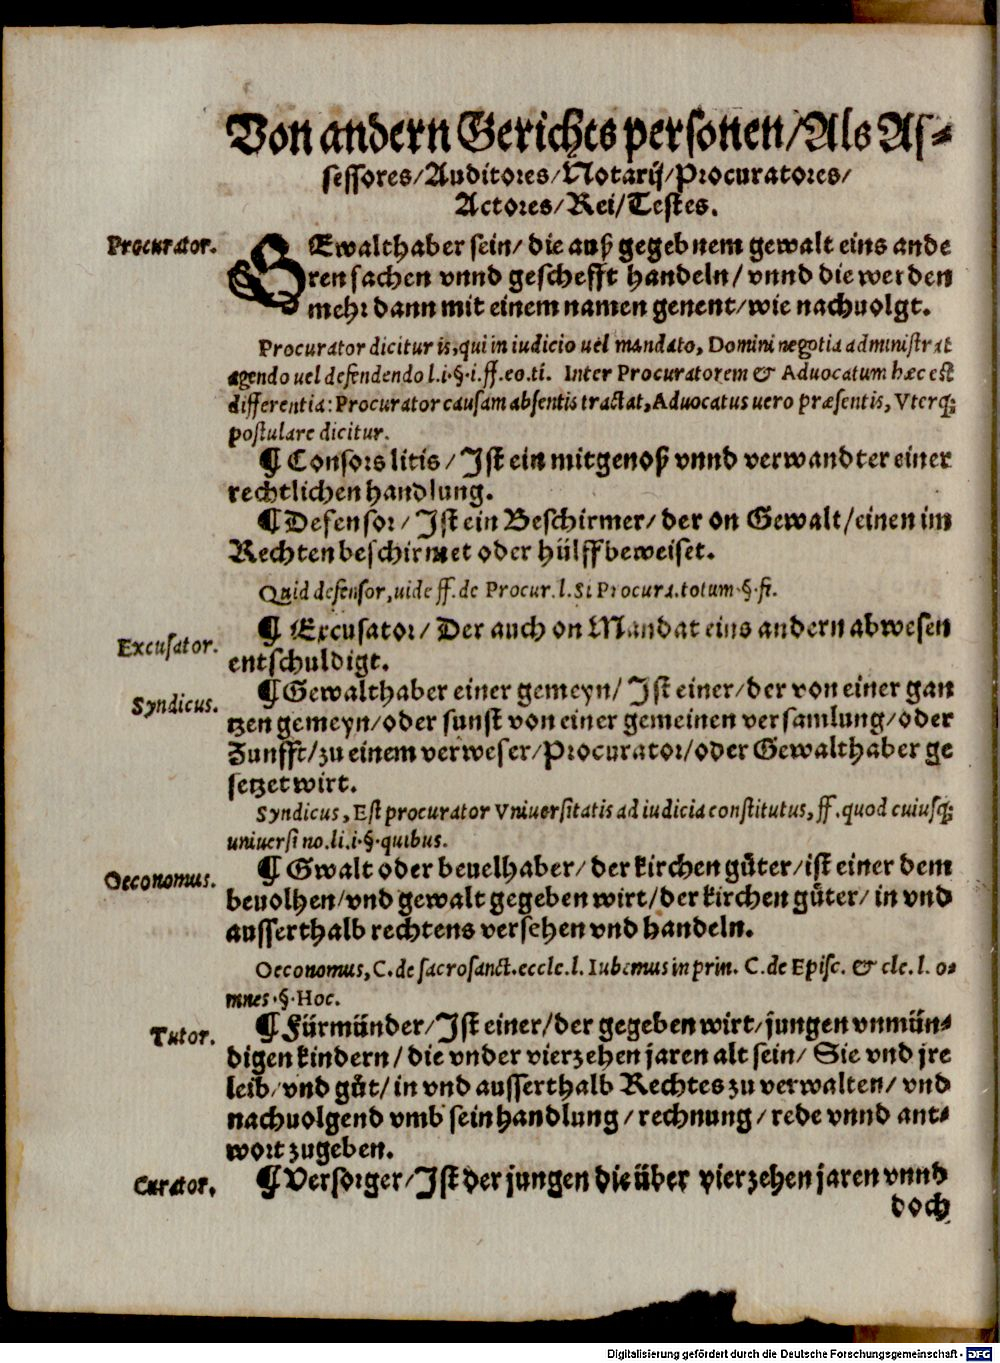 Von andern Gerichts personen/Als As⸗
sessores/Auditores/Notarij/Procuratores/
Actores/Rei/Testes.
Procurator.
GEwalthaber sein/ die auß gegebnem gewalt eins ande
ren sachen vnnd geschefft handeln/ vnnd die werden
mehr dann mit einem namen genent/wie nachuolgt.
Procurator dicitur is,qui in iudicio uel mandato, Domini negotia administrat
agendo uel defendendo l.i.§.i.ff.eo.ti. Inter Procuratorem & Aduocatum hæc est
differentia: Procurator causam absentis tractat, Aduocatus uero præsentis, Vterq;
postulare dicitur.
¶ Consors litis / Ist ein mitgenoß vnnd verwandter einer
rechtlichen handlung.
¶ Defensor/ Ist ein Beschirmer/ der on Gewalt/einen im
Rechten beschirmet oder hülff beweiset.
Quid defensor,uide ff.de Procur.l.Si Procura.totum.§.fi.
Excusator.
¶ Excusator/ Der auch on Mandat eins andern abwesen
entschuldigt.
Syndicus.
¶ Gewalthaber einer gemeyn/ Ist einer/der von einer gan
tzen gemeyn/oder sunst von einer gemeinen versamlung/oder
Zunfft/zu einem verweser/Procurator/oder Gewalthaber ge
setzet wirt.
Syndicus, Est procurator Vniuersitatis ad iudicia constitutus, ff.quod cuiusq;
uniuersi no.li.i.§.quibus.
Oeconomus.
¶ Gwalt oder beuelhaber/ der kirchen guͤter/ist einer dem
beuolhen/vnd gewalt gegeben wirt/der kirchen guͤter/ in vnd
ausserthalb rechtens versehen vnd handeln.
Oeconomus, C.de sacrosanct.eccle.l. Iubemus in prin. C.de Episc. & cle.l. o⸗
mnes.§.Hoc.
Tutor.
¶ Fürmünder/Ist einer/der gegeben wirt/jungen vnmün⸗
digen kindern / die vnder vierzehen jaren alt sein/ Sie vnd jre
leib/vnd guͤt/ in vnd ausserthalb Rechtes zu verwalten/ vnd
nachuolgend vmb sein handlung / rechnung / rede vnnd ant⸗
wort zugeben.
Curator.
¶ Versorger/Ist der jungen die über vierzehen jaren vnnd
doch
Digitalisierung gefördert durch die Deutsche Forschungsgemeinschaft - DFG